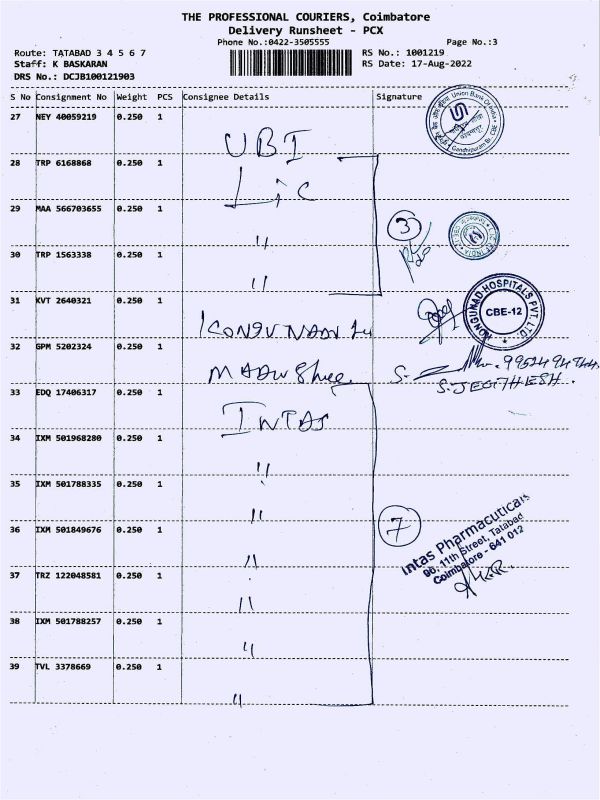 THE PROFESSIONAL COURIERS, Coimbatore
Delivery Runsheet - PCX
Phone No.:0422-3505555
Page No.:3
Route: TATABAD 3 4 5 6 7
RS No.: 1001219
Staff: K BASKARAN
RS Date: 17-Aug-2022
DRS No.: DCJB100121903
S No Consignment No Weight PCS Consignee Details Signature
27 NEY 40059219 0.250 1
UBI
28 TRP 6168868 0.250 1
Lic
29 MAA 566703655 0.250 1
"
3
30 TRP 1563338 0.250 1
"
31 KVT 2640321 0.250 1
KONGUNAD HOSPITALS PVT. LTD.
CBE-12
32 GPM 5202324 0.250 1
S. JEGITHESH
33 EDQ 17406317 0.250 1
INTAS
34 IXM 501968280 0.250 1
"
35 IXM 501788335 0.250 1
"
7
36 IXM 501849676 0.250 1
"
Intas Pharmaceuticals
96, 11th Street, Tatabad
Coimbatore - 641 012
37 TRZ 122048581 0.250 1
"
38 IXM 501788257 0.250 1
"
39 TVL 3378669 0.250 1
"